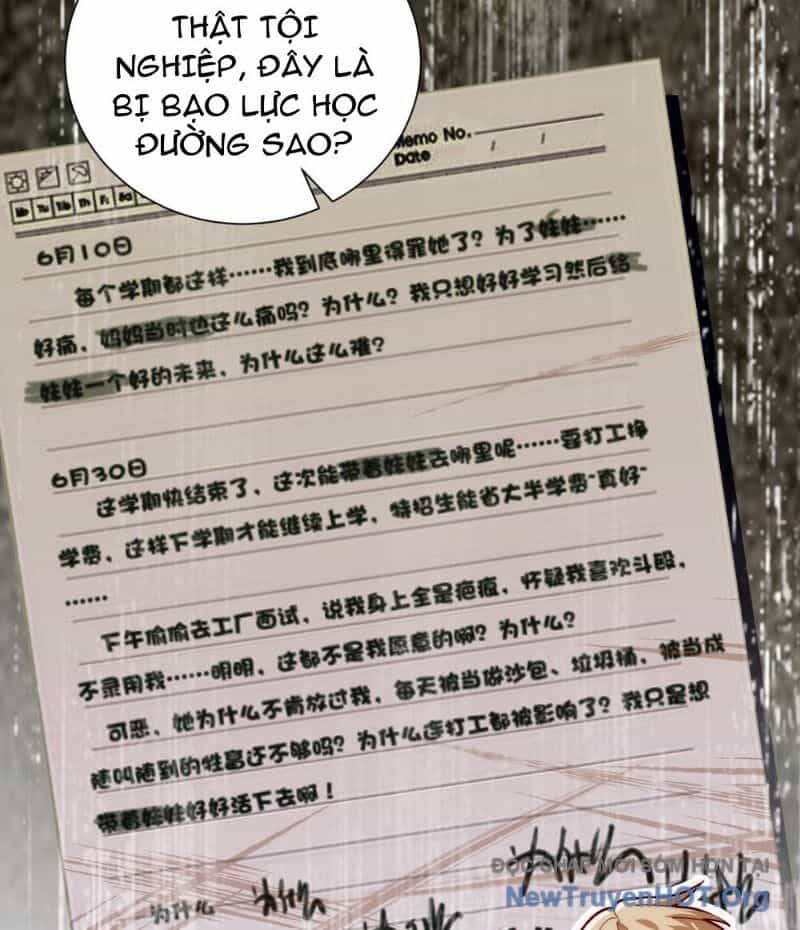 THẬT TỘI
NGHIỆP, ĐÂY LÀ
BỊ BẠO LỰC HỌC
ĐƯỜNG SAO?
Memo No.
Date / /
Mo Tu We Th Fr Sa
6月10日
每个学期都这样……我到底哪里得罪她了？为了娃娃……
好痛，妈妈当时也这么痛吗？为什么？我只想好好学习然后给
娃娃一个好的未来，为什么这么难？
6月30日
这学期快结束了，这次能带着娃娃去哪里呢……要打工挣
学费，这样下学期才能继续上学，特招生能省大半学费"真好"
……
下午偷偷去工厂面试，说我身上全是疤痕，怀疑我喜欢斗殴，
不录用我……明明，这都不是我愿意的啊？为什么？
可恶，她为什么不肯放过我，每天被当做沙包、垃圾桶，被当成
随叫随到的性富还不够吗？为什么连打工都被影响了？我只是想
带着娃娃好好活下去啊！
为什么
为什么
为什么
ĐỌC CHAP MỚI SỚM HƠN TẠI
NewTruyenHOT.Org